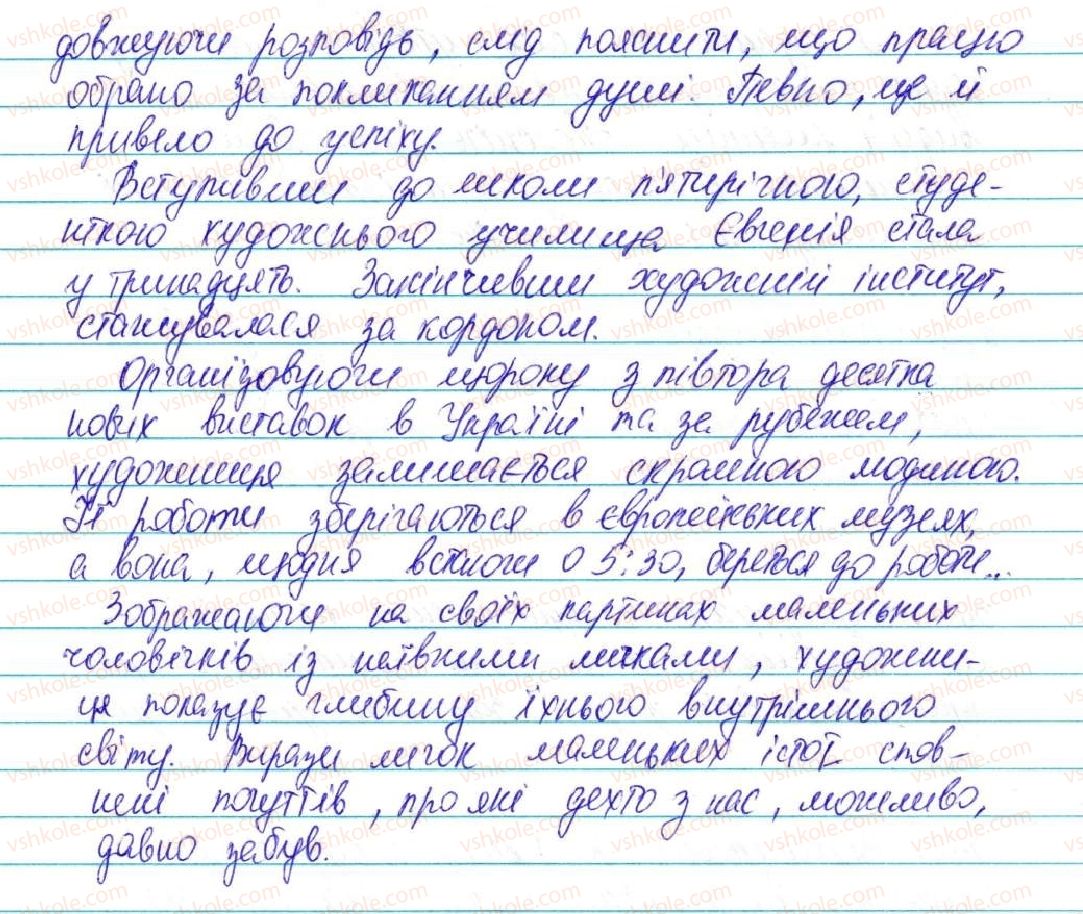 довжуючи розповідь, слід пояснити, що працю
обрано за покликанням душі. Певно, це й
привело до успіху.
Вступивши до школи п'ятирічною, студе-
нткою художнього училища Євгенія стала
у тринадцять. Закінчивши художній інститут,
стажувалася за кордоном.
Організовуючи щороку з півтора десятка
нових виставок в Україні та за рубежем,
художниця залишається скромною людиною.
Її роботи зберігаються в європейських музеях,
а вона, щодня встаючи о 5:30, береться до роботи...
Зображаючи на своїх картинах маленьких
чоловічків із наївними личками, художни-
ця показує глибину їхнього внутрішнього
світу. Вирази личок маленьких істот спов-
нені почуттів, про які дехто з нас, можливо,
давно забув.